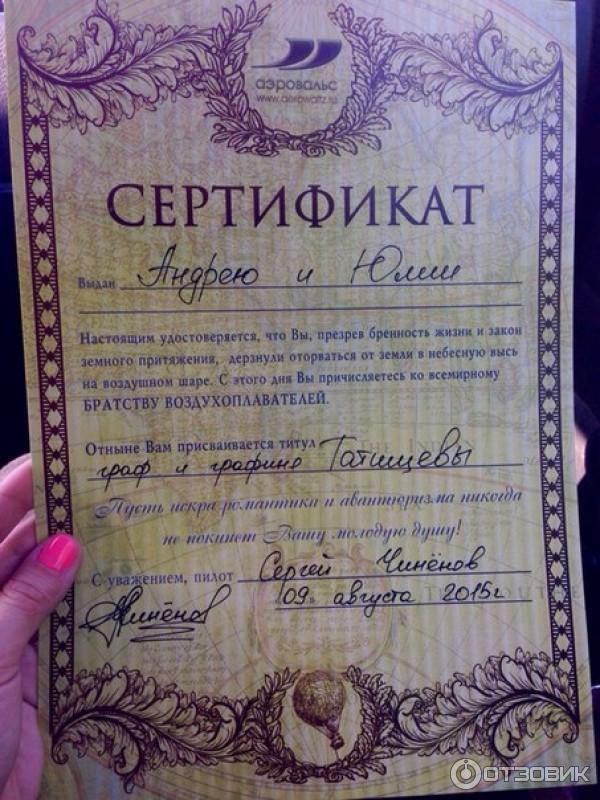 аэровальс
www.aerowaltz.ru
СЕРТИФИКАТ
Выдан Андрею и Юлии
Настоящим удостоверяется, что Вы, презрев бренность жизни и закон
земного притяжения, дерзнули оторваться от земли в небесную высь
на воздушном шаре. С этого дня Вы причисляетесь ко всемирному
БРАТСТВУ ВОЗДУХОПЛАВАТЕЛЕЙ.
Отныне Вам присваивается титул
граф и графине Татищевы
Пусть искра романтики и авантюризма никогда
не покинет Вашу молодую душу!
С уважением, пилот Сергей Чинёнов
Чинёнов «09» августа 2015г
ОТЗОВИК